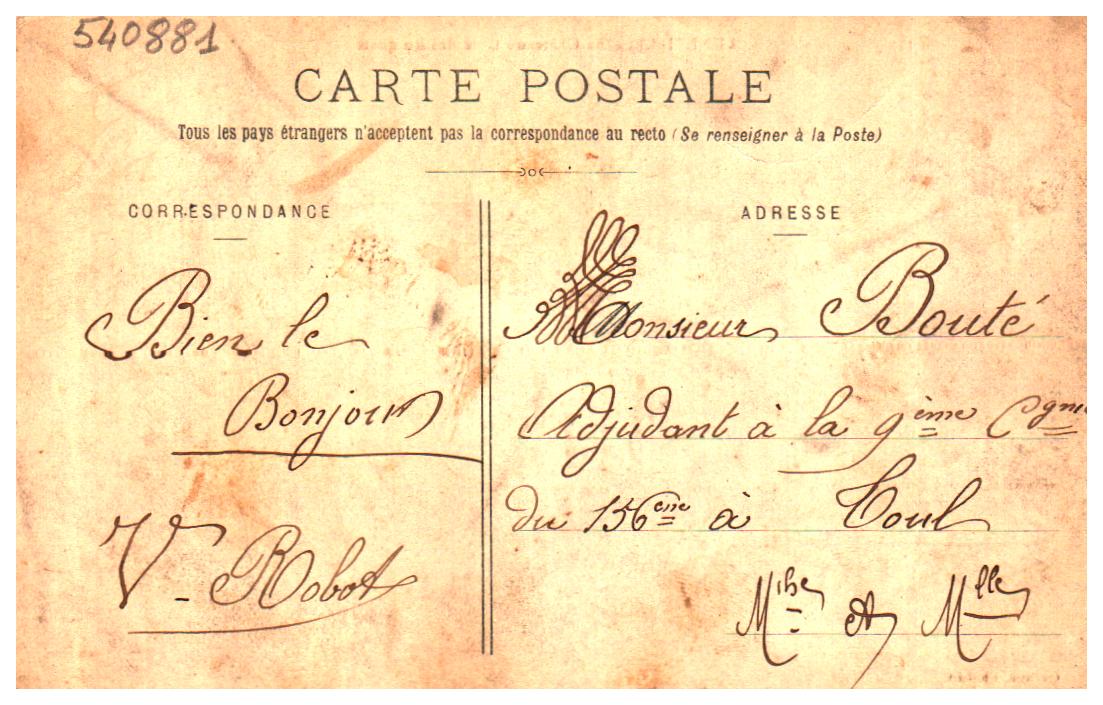 540881
CARTE POSTALE
Tous les pays étrangers n'acceptent pas la correspondance au recto (Se renseigner à la Poste)
CORRESPONDANCE
ADRESSE
Bien le
Bonjour
V. Robot
Monsieur Bouté
Adjudant à la 9ème Cgnie
du 156eme à Toul
Mthe et Mlle